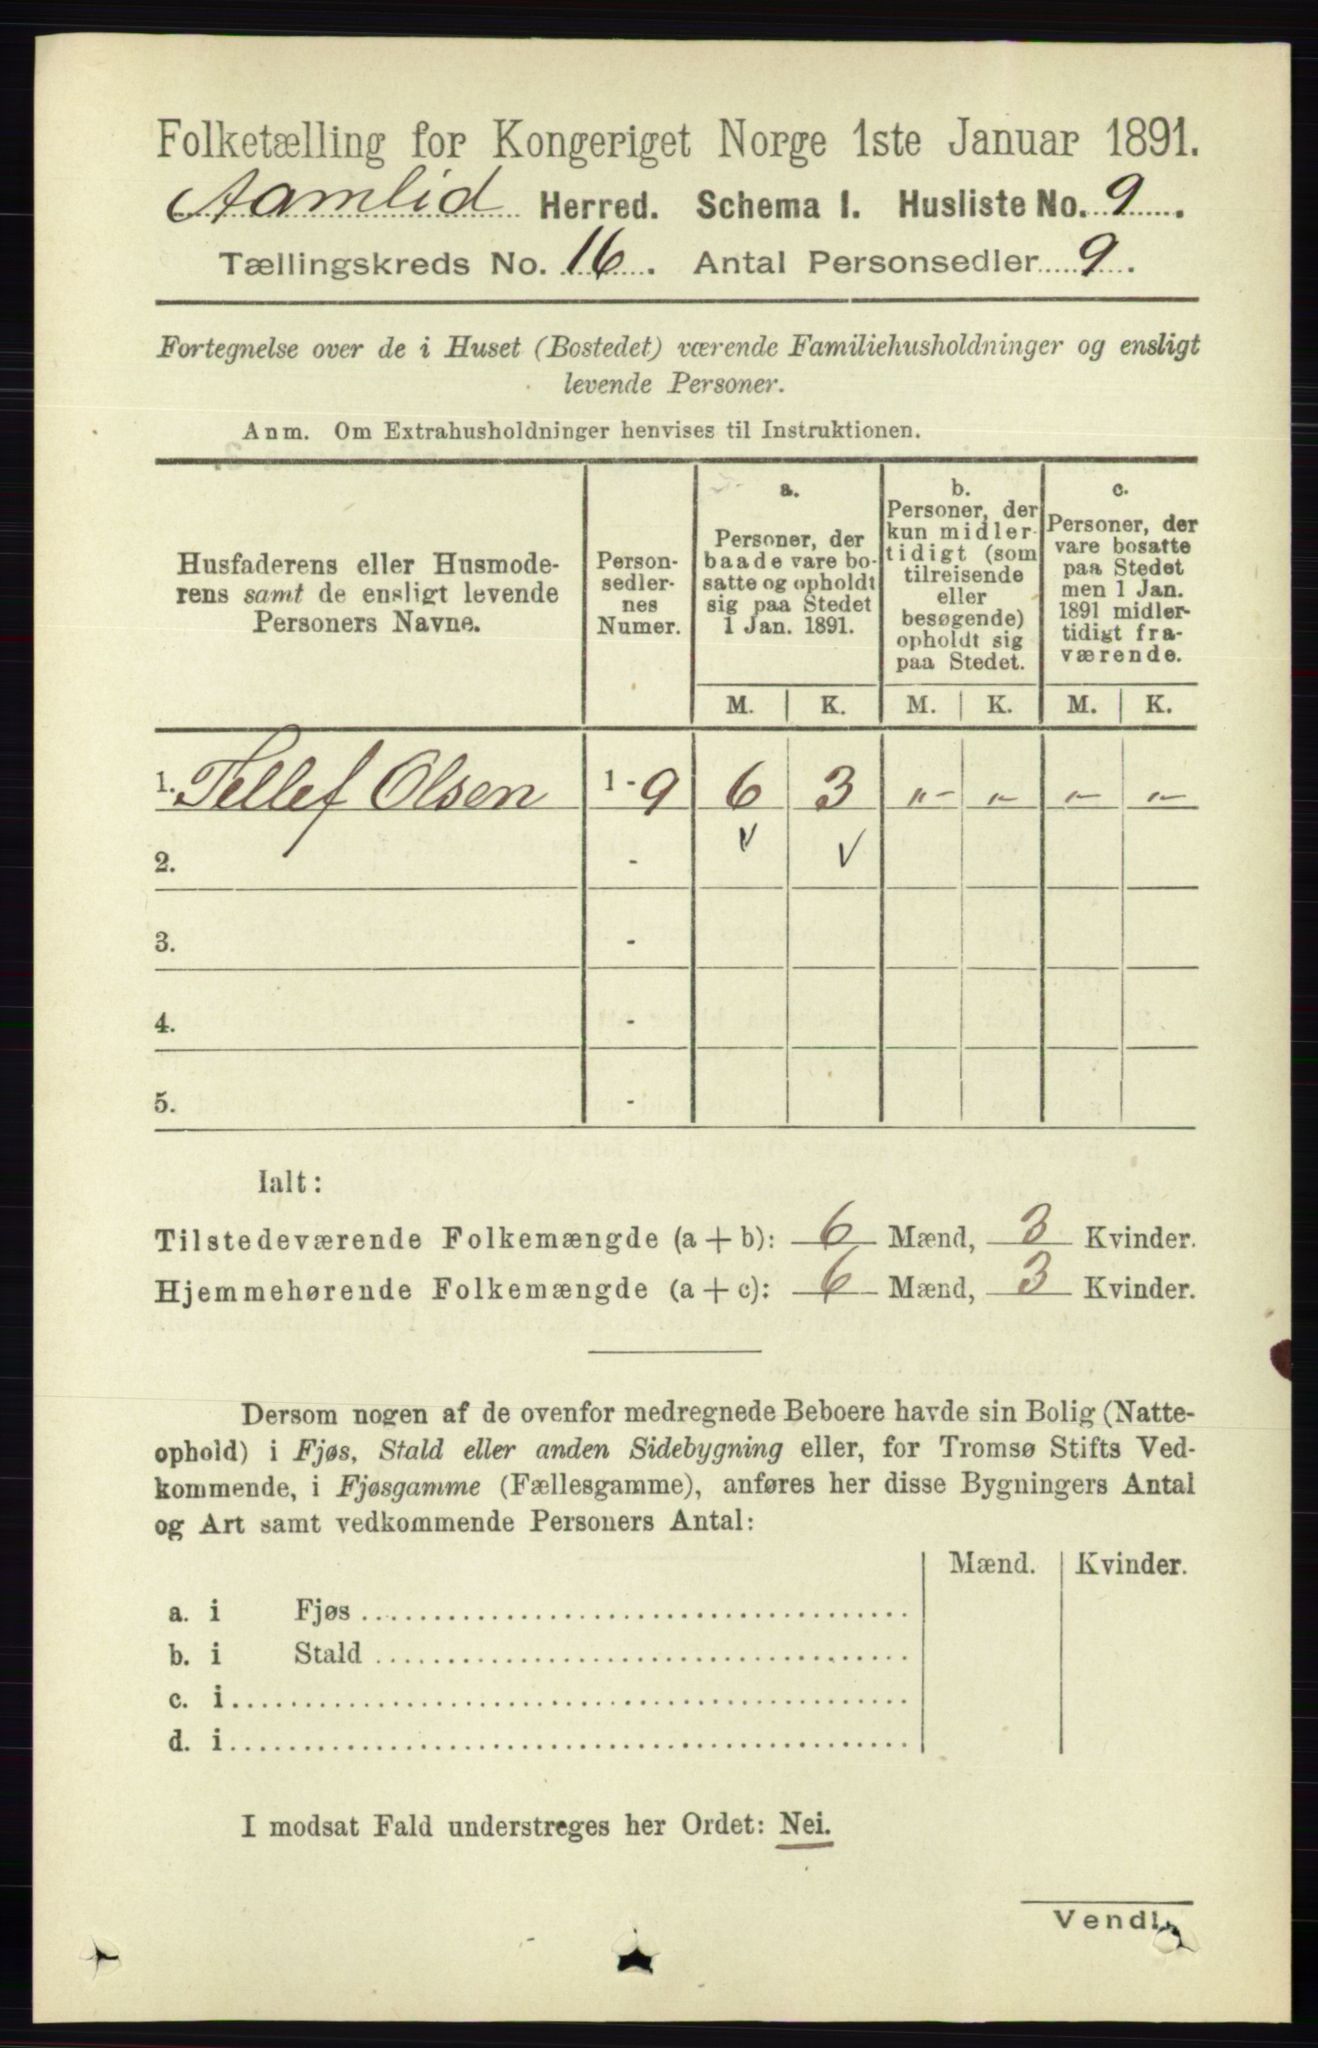 Folketælling for Kongeriget Norge 1ste Januar 1891.
Aamlid Herred. Schema I. Husliste No. 9.
Tællingskreds No. 16. Antal Personsedler 9.
Fortegnelse over de i Huset (Bostedet) værende Familiehusholdninger og ensligt
levende Personer.
Anm. Om Extrahusholdninger henvises til Instruktionen.
Husfaderens eller Husmode-
rens samt de ensligt levende
Personers Navne.
Person-
sedler-
nes
Numer.
a.
Personer, der
baade vare bo-
satte og opholdt
sig paa Stedet
1 Jan. 1891.
b.
Personer, der
kun midler-
tidigt (som
tilreisende
eller
besøgende)
opholdt sig
paa Stedet.
c.
Personer, der
vare bosatte
paa Stedet
men 1 Jan.
1891 midler-
tidigt fra-
værende.
M. K. M. K. M. K.
1. Tellef Olsen 1-9 6 3 „- „- „- „-
2. - v v
3. -
4. -
5. -
Ialt:
Tilstedeværende Folkemængde (a + b): 6 Mænd, 3 Kvinder.
Hjemmehørende Folkemængde (a + c): 6 Mænd, 3 Kvinder.
Dersom nogen af de ovenfor medregnede Beboere havde sin Bolig (Natte-
ophold) i Fjøs, Stald eller anden Sidebygning eller, for Tromsø Stifts Ved-
kommende, i Fjøsgamme (Fællesgamme), anføres her disse Bygningers Antal
og Art samt vedkommende Personers Antal:
Mænd. Kvinder.
a. i Fjøs
b. i Stald
c. i
d. i
I modsat Fald understreges her Ordet: Nei.
Vend!